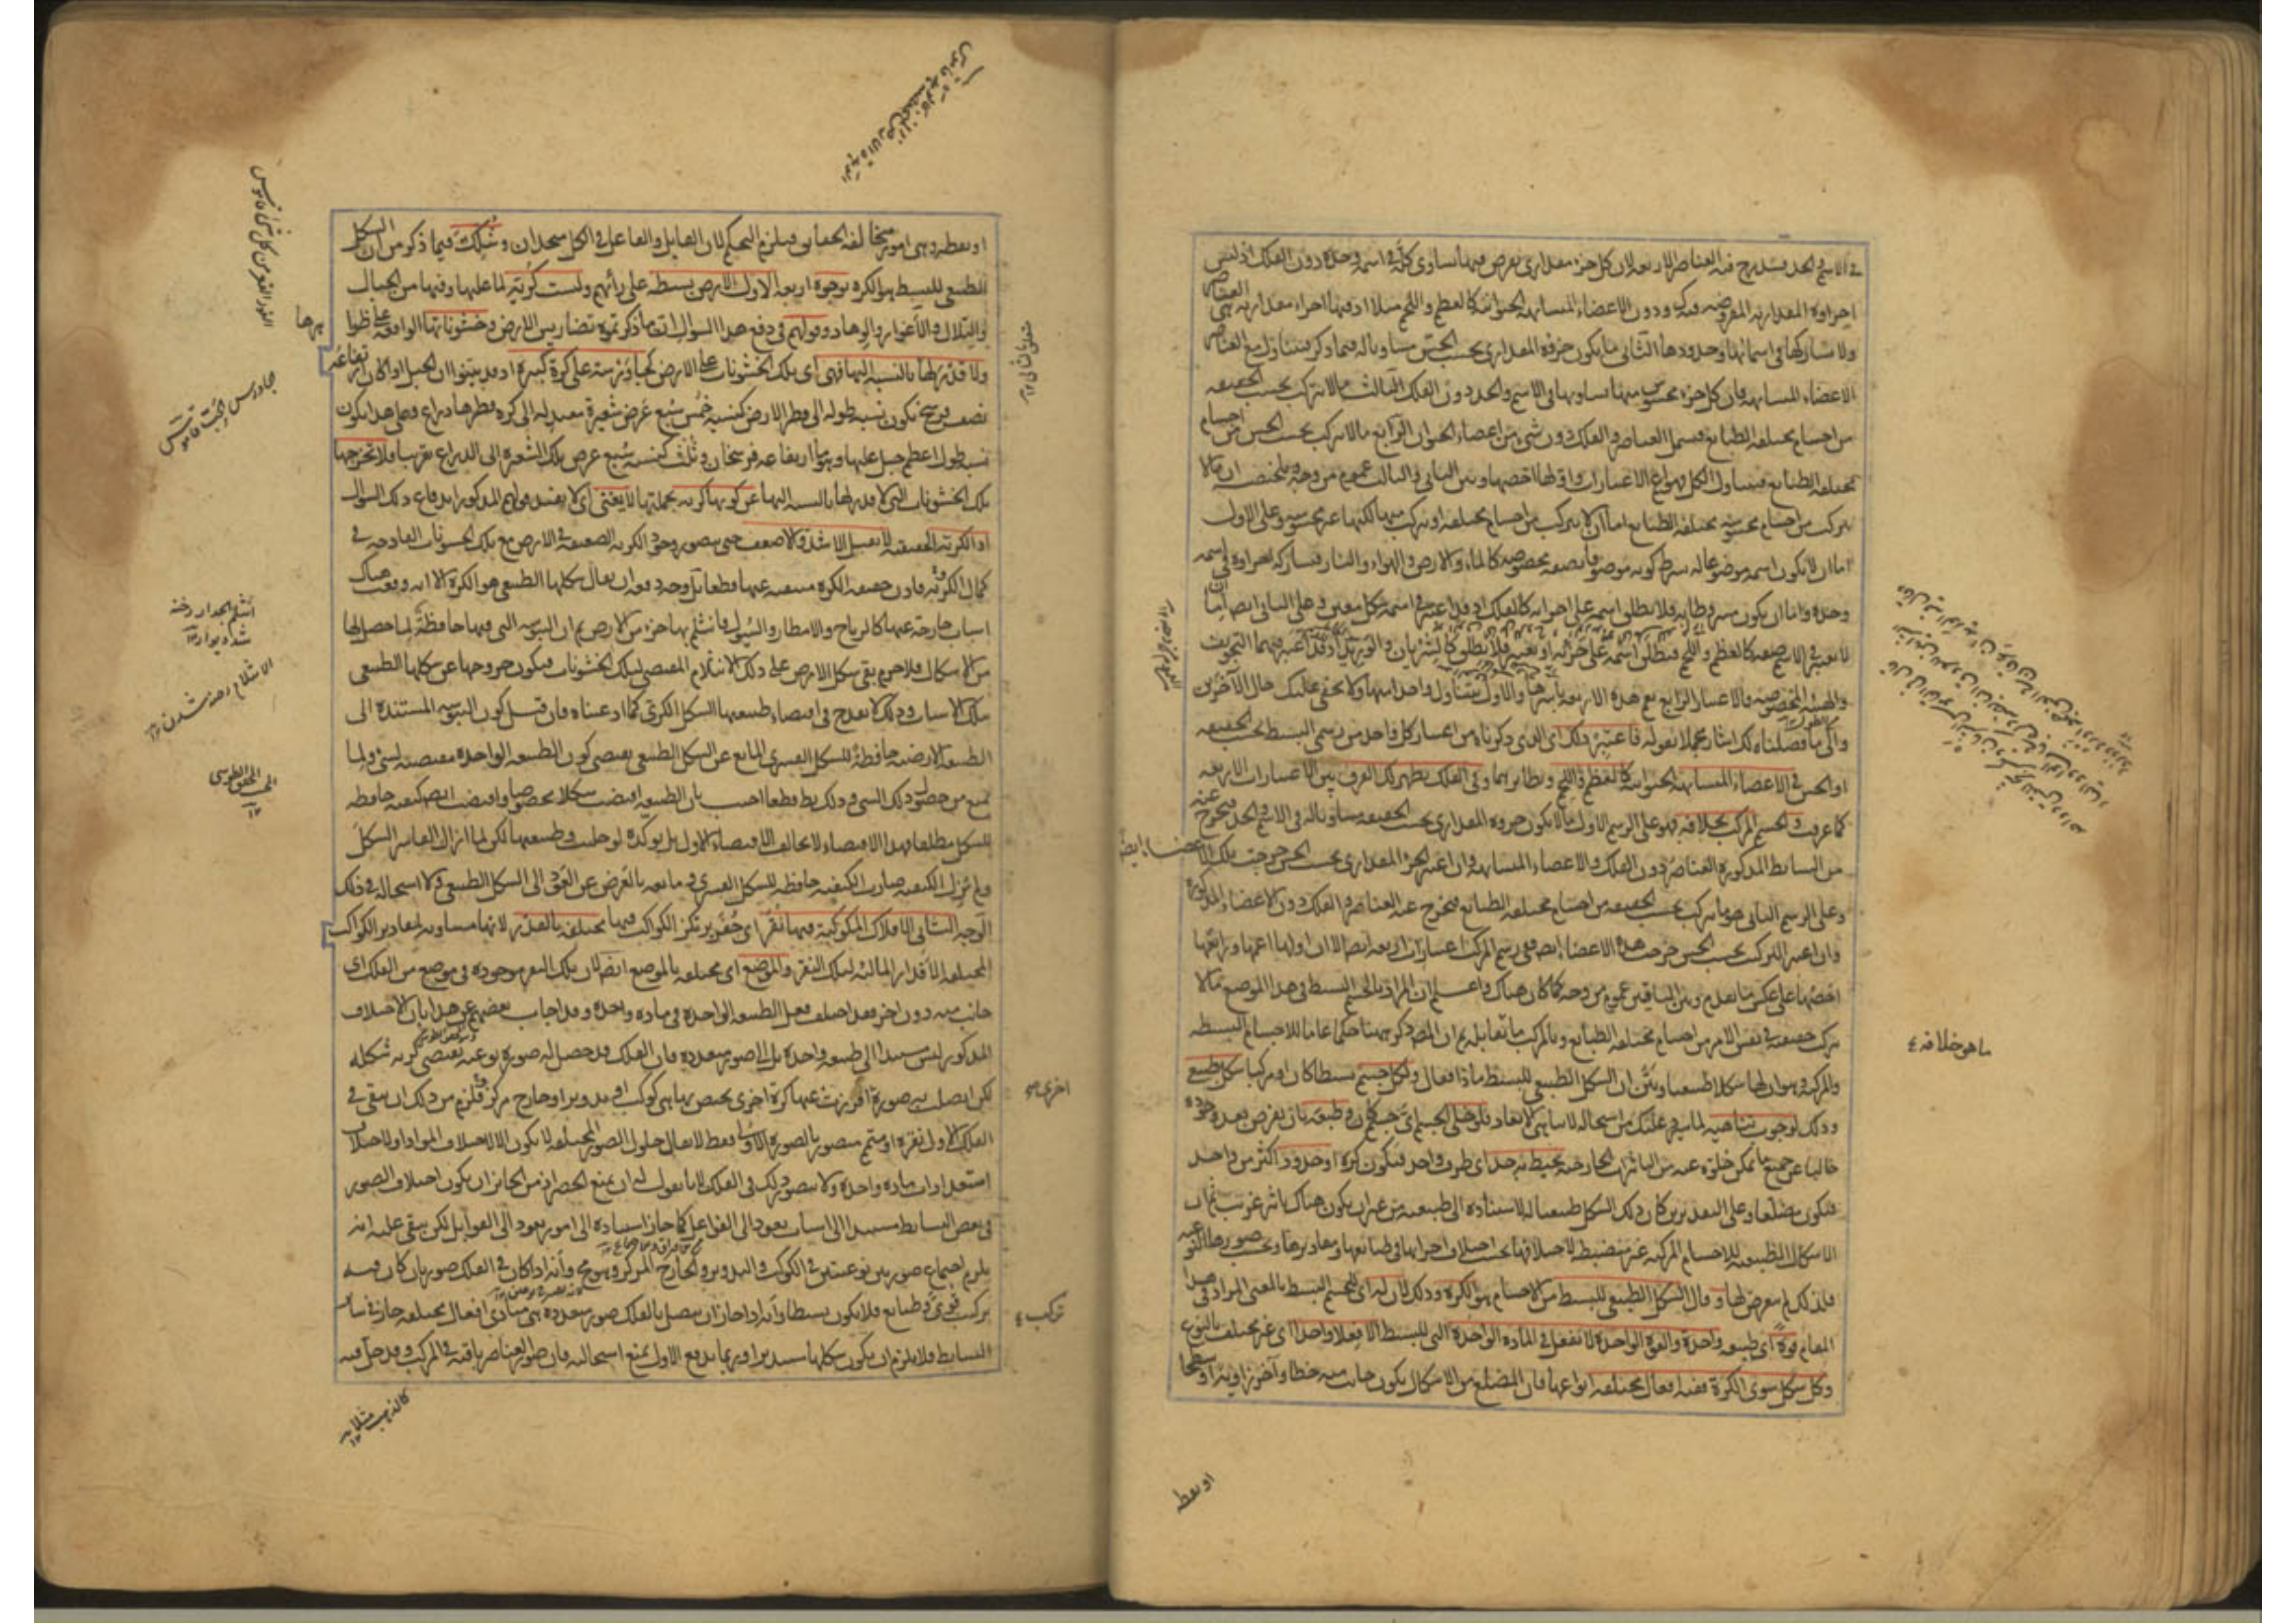 في الاسم والحد فيندرج فيه العناصر الاربعة لان كل جزء مقداري يفرض فيها يساوي كله في اسمه وحده دون الفلك اذ ليس
اجزاؤه المقدارية المفروضة فيه ودون الاعضاء المتشابهة الحيوانية كالعظم واللحم مثلا اذ فيها اجزاء مقدارية هي العناصر
ولا تشاركها في اسمائها وحدودها الثاني ما يكون جزؤه المقداري بحسب الحس مساويا له فيما ذكر فيتناول مع العناصر
الاعضاء المتشابهة فان كل جزء محسوس منها يساويها في الاسم والحد دون الفلك الثالث ما لا يتركب بحسب الحقيقة
من اجسام مختلفة الطبايع فيشمل العناصر والفلك دون شيء من اعضاء الحيوان الرابع ما لا يتركب بحسب الحس من اجسام
مختلفة الطبايع فيتناول الكل فهو اعم الاعتبارات واولها اخصها وبين الثاني والثالث عموم من وجه وملخصه ان ما لا
يتركب من اجسام محسوسة مختلفة الطبايع اما ان لا يتركب من اجسام مختلفة او يتركب منها لكنها غير محسوسة وعلى الاول
اما ان لا يكون اسمه موضوعا له بشرط كونه موصوفا بصفة مخصوصة كالماء والارض والهواء والنار فيشاركه اجزاؤه في اسمه
وحده واما ان يكون مشروطا به فلا يطلق اسمه على اجزائه كالفلك اذ قد اعتبر في اسمه شكل معين وعلى الثاني ايضا اما ان
لا يعتبر في الاسم صفة كالعظم واللحم فيطلق اسمه على اجزائه او يعتبر فلا يطلق كالشريان والوريد اذ قد اعتبر فيهما التجويف
والهيئة المخصوصة والاعتبار الرابع يعم هذه الاربعة باسرها والاول يتناول واحدا منها ولا يخفى عليك حال الآخرين
والى ما فصلناه لك اشار مجملا بقوله فاعتبر ذلك اي الذي ذكرناه من اعتبار كل واحد من رسمي البسيط بحسب الحقيقة
او الحس في الاعضاء المتشابهة الحيوانية كالعظم واللحم ونظايرهما وفي الفلك يظهر لك الفرق بين الاعتبارات الاربعة
كما عرفت والجسم المركب بخلافه فهو على الرسم الاول ما لا يكون جزؤه المقداري بحسب الحقيقة مساويا له في الاسم والحد فيخرج عنه
من البسائط المذكورة العناصر دون الفلك والاعضاء المتشابهة وان اعتبر الجزء المقداري بحسب الحس خرجت تلك الاعضاء ايضا
وعلى الرسم الثاني هو ما يتركب بحسب الحقيقة من اجسام مختلفة الطبايع فيخرج عنه العناصر والفلك دون الاعضاء المذكورة
وان اعتبر التركيب بحسب الحس خرجت هذه الاعضاء ايضا ففي رسم المركب اعتبارات اربعة ايضا الا ان اولها اعمها ورابعها
اخصها على عكس ما تقدم وبين الباقيين عموم من وجه كما كان هناك واعلم ان المراد بالجسم البسيط في هذا الموضع ما لا
يتركب حقيقة في نفس الامر من اجسام مختلفة الطبايع وبالمركب ما يقابله ثم ان المصنف ذكر ههنا حكما عاما للاجسام البسيطة
والمركبة وهو ان لها شكلا طبيعيا وبين ان الشكل الطبيعي للبسيط ماذا فقال ولكل جسم بسيطا كان او مركبا شكل طبيعي
وذلك لوجوب تناهيه لما سيرد عليك من استحالة لا تناهي الابعاد فلو خلي الجسم اي جسم كان وطبعه بان يفرض بعد وجوده
خاليا عن جميع ما يمكن خلوه عنه من التأثيرات الخارجية يحيط به حد اي طرف واحد فيكون كرة او حدود اكثر من واحد
فيكون مضلعا وعلى التقديرين كان ذلك الشكل طبيعيا له لاستناده الى طبيعته من غير ان يكون هناك تأثير غريب ثم ان
الاشكال الطبيعية للاجسام المركبة غير منضبطة لاختلافها بحسب اختلاف اجزائها في طبائعها ومقاديرها وبحسب صورها النوعية
فلذلك لم يتعرض لها وقال الشكل الطبيعي للبسيط من الاجسام هو الكرة وذلك لان له اي للجسم البسيط بالمعنى المراد في هذا
المقام قوة اي طبيعة واحدة والقوة الواحدة لا تفعل في المادة الواحدة التي للبسيط الا فعلا واحدا اي غير مختلف بالنوع
وكل شكل سوى الكرة ففيه افعال مختلفة انواعها فان المضلع من الاشكال يكون جانب منه خطا وآخر زاوية او سطحا
ما هو خلافه
او نقطة
او نقطة وهي امور متخالفة الحقايق فيلزم التحكم لان القابل والفاعل في الكل متحدان وشكك فيما ذكر من ان الشكل
الطبيعي للبسيط هو الكرة بوجوه اربعة الاول الارض بسيطة على رأيهم وليست كرية لما عليها وفيها من الجبال
والتلال والاغوار والوهاد وقولهم في دفع هذا السؤال ان ما ذكرتموه تضاريس الارض وخشوناتها الواقعة على ظهرها
ولا قدر لها بالنسبة اليها فهي اي تلك الخشونات على الارض كجاورسة على كرة كبيرة اذ قد بينوا ان الجبل اذا كان ارتفاعه
نصف فرسخ تكون نسبة طوله الى قطر الارض كنسبة خمس سبع عرض شعيرة معتدلة الى كرة قطرها ذراع وعلى هذا يكون
نسبة طول اعظم جبل عليها وهو ما ارتفاعه فرسخان وثلث كنسبة سبع عرض تلك الشعيرة الى الذراع تقريبا فلا تخرجها
تلك الخشونات التي لا قدر لها بالنسبة اليها عن كونها كرية بجملتها لا يغني اي لا يفيد قولهم المذكور اندفاع ذلك السؤال
اذ الكرية الحقيقية لا تقبل الاشد والاضعف حتى يتصور وجود الكرية الضعيفة في الارض مع تلك الخشونات القادحة في
كمال الكرية فاذن حقيقة الكرة منتفية عنها قطعا بل وجد فوران يقال شكلها الطبيعي هو الكرة الا انه وقعت هناك
اسباب خارجة عنها كالرياح والامطار والسيول فانثلم بها جزء من الارض ثم ان اليبوسة التي فيها حافظة لما حصل لها
من الاشكال فلا جرم بقي شكل الارض على ذلك الانثلام المقتضي لتلك الخشونات فيكون خروجها عن شكلها الطبيعي
بتلك الاسباب وذلك لا يقدح في اقتضاء طبيعتها الشكل الكري كما ادعيناه فان قيل كون اليبوسة المستندة الى
الطبيعة الارضية حافظة للشكل القسري المانع عن الشكل الطبيعي يقتضي كون الطبيعة الواحدة مقتضية لشيء ولما
يمنع من حصول ذلك الشيء وذلك بط قطعا اجيب بان الطبيعة اقتضت شكلا مخصوصا واقتضت ايضا كيفية حافظة
للشكل مطلقا فهذا الاقتضاء لا يخالف الاقتضاء الاول بل يؤكده لو خليت وطبيعتها لكن لما ازال القاسر الشكل
ولم يزل الكيفية صارت الكيفية حافظة للشكل القسري ومانعة بالعرض عن العود الى الشكل الطبيعي ولا استحالة في ذلك
الوجه الثاني الافلاك المكوكبة فيها نقر اي حفر يرتكز الكواكب فيها مختلفة بالقدر لانها مساوية لمقادير الكواكب
المختلفة الاقدار المالئة لتلك النقر والموضع اي مختلفة بالموضع ايضا لان تلك النقر موجودة في موضع من الفلك اي
جانب منه دون آخر فقد اختلف فعل الطبيعة الواحدة في مادة واحدة وقد اجاب بعضهم عن هذا بان الاختلاف
المذكور ليس مستندا الى طبيعة واحدة بل الى صور متعددة فان الفلك قد حصل له صورة نوعية تقتضي كرية شكله
لكن اتصلت به صورة افرزت عنها كرة اخرى يختص بها هي كوكب او تدوير او خارج مركز فلزم من ذلك ان يبقى في
الفلك الاول نقرة او متمم متصور بالصورة الاولى فقط لا يقال حلول الصور المختلفة لا يكون الا لاختلاف المواد او لاختلاف
استعدادات مادة واحدة ولا يتصور ذلك في الفلك لانا نقول له ان يمنع الحصر اذ من الجائز ان يكون اختلاف الصور
في بعض البسايط مستندا الى اسباب يعود الى الفواعل كما جاز استناده الى امور يعود الى القوابل لكن بقي عليه انه
يلزم اجتماع صورتين نوعيتين في الكوكب والتدوير والخارج المركز وهو مح وانه اذا كان في الفلك صورتان كان فيه
تركب قوى وطبايع فلا يكون بسيطا وانه اذا جاز ان يتصل بالفلك صور متعددة هي مبادي افعال مختلفة جاز في سائر
البسايط فلا يلزم ان يكون شكلها مستديرا وربما يدفع الاول بمنع استحالته فان صور العناصر باقية في المركب وقد حل فيه
جاورس
انثلم الجدار رخنه
شد ديوار
الانثلام رخنه شدن
المحقق الطوسي
اخرى
تركب